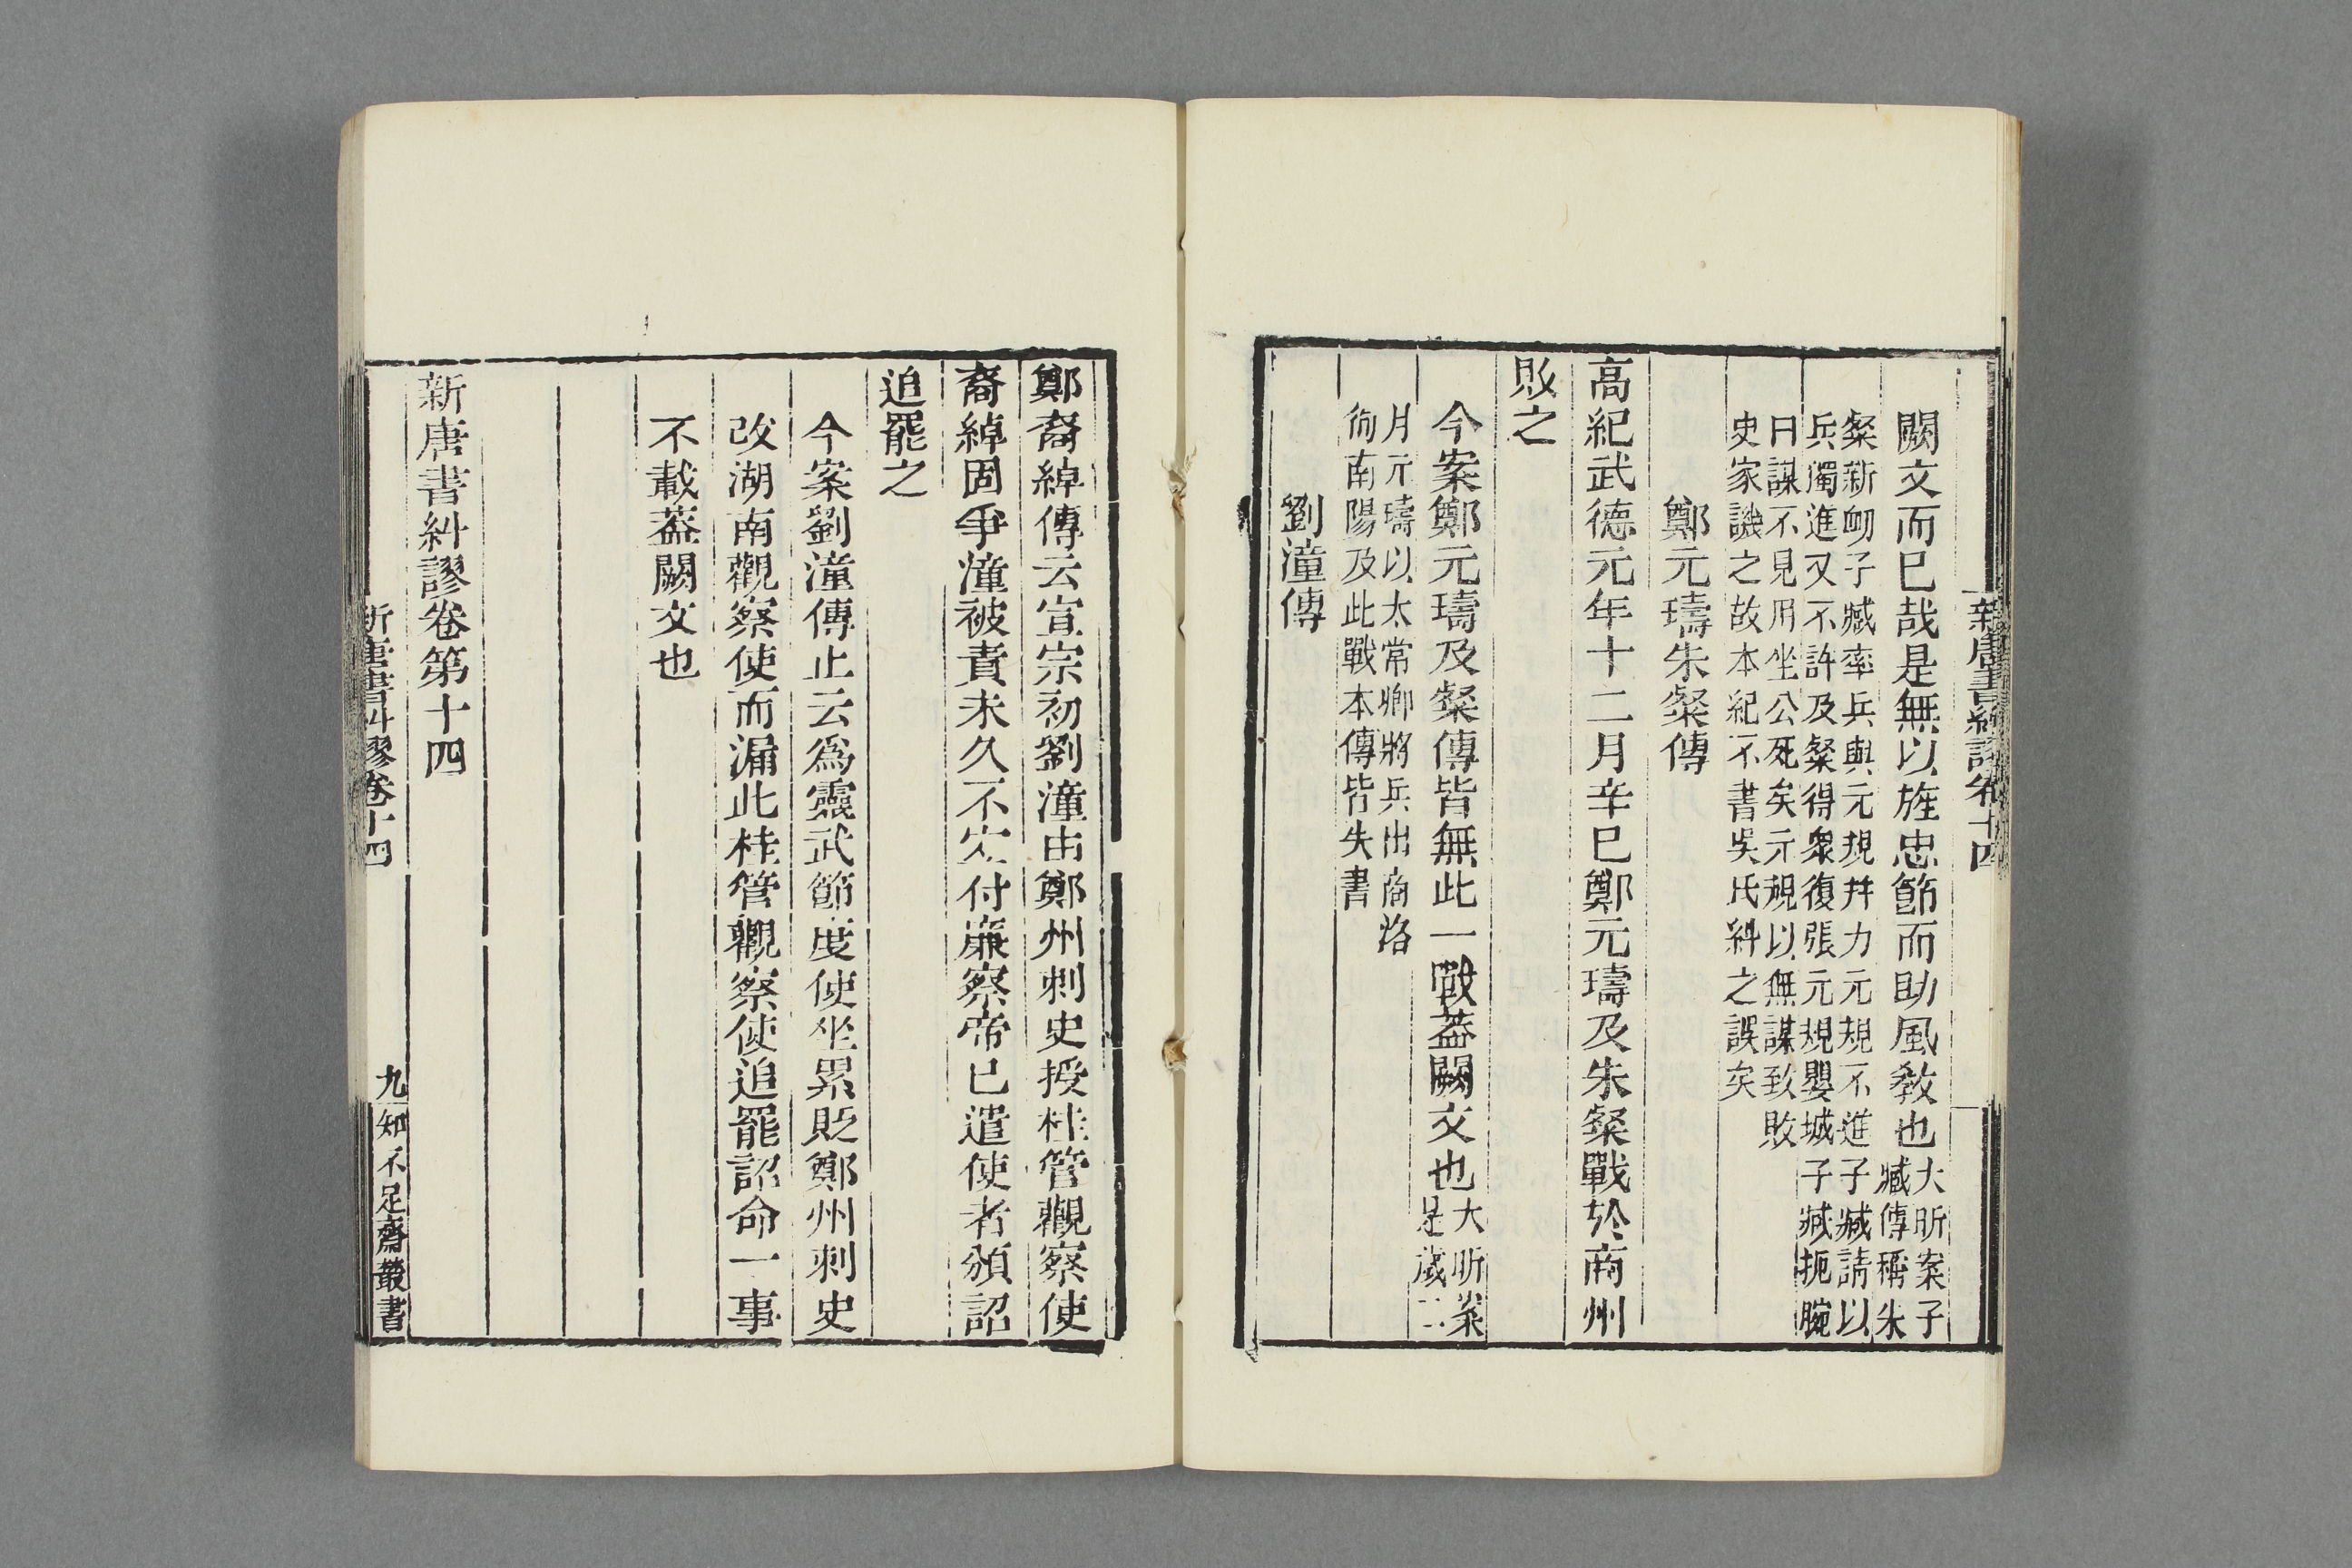 新唐書糾謬卷十四
闕文而巳哉是無以旌忠節而助風敎也大昕案子
臧傳稱朱
粲新衂子臧率兵與元規幷力元規不進子臧請以
兵獨進又不許及粲得衆復張元規嬰城子臧扼腕
曰謀不見用坐公死矣元規以無謀致敗
史家譏之故本紀不書吳氏糾之誤矣
鄭元璹朱粲傳
高紀武德元年十二月辛巳鄭元璹及朱粲戰於商州
敗之
今案鄭元璹及粲傳皆無此一戰葢闕文也大昕案
是歲二
月元璹以太常卿將兵出商洛
徇南陽及此戰本傳皆失書
劉潼傳
鄭裔綽傳云宣宗初劉潼由鄭州刺史授桂管觀察使
裔綽固爭潼被責未久不宜付廉察帝已遣使者頒詔
追罷之
今案劉潼傳止云為靈武節度使坐累貶鄭州刺史
改湖南觀察使而漏此桂管觀察使追罷詔命一事
不載葢闕文也
新唐書糾謬卷第十四
新唐書糾謬卷十四
九
知不足齋叢書